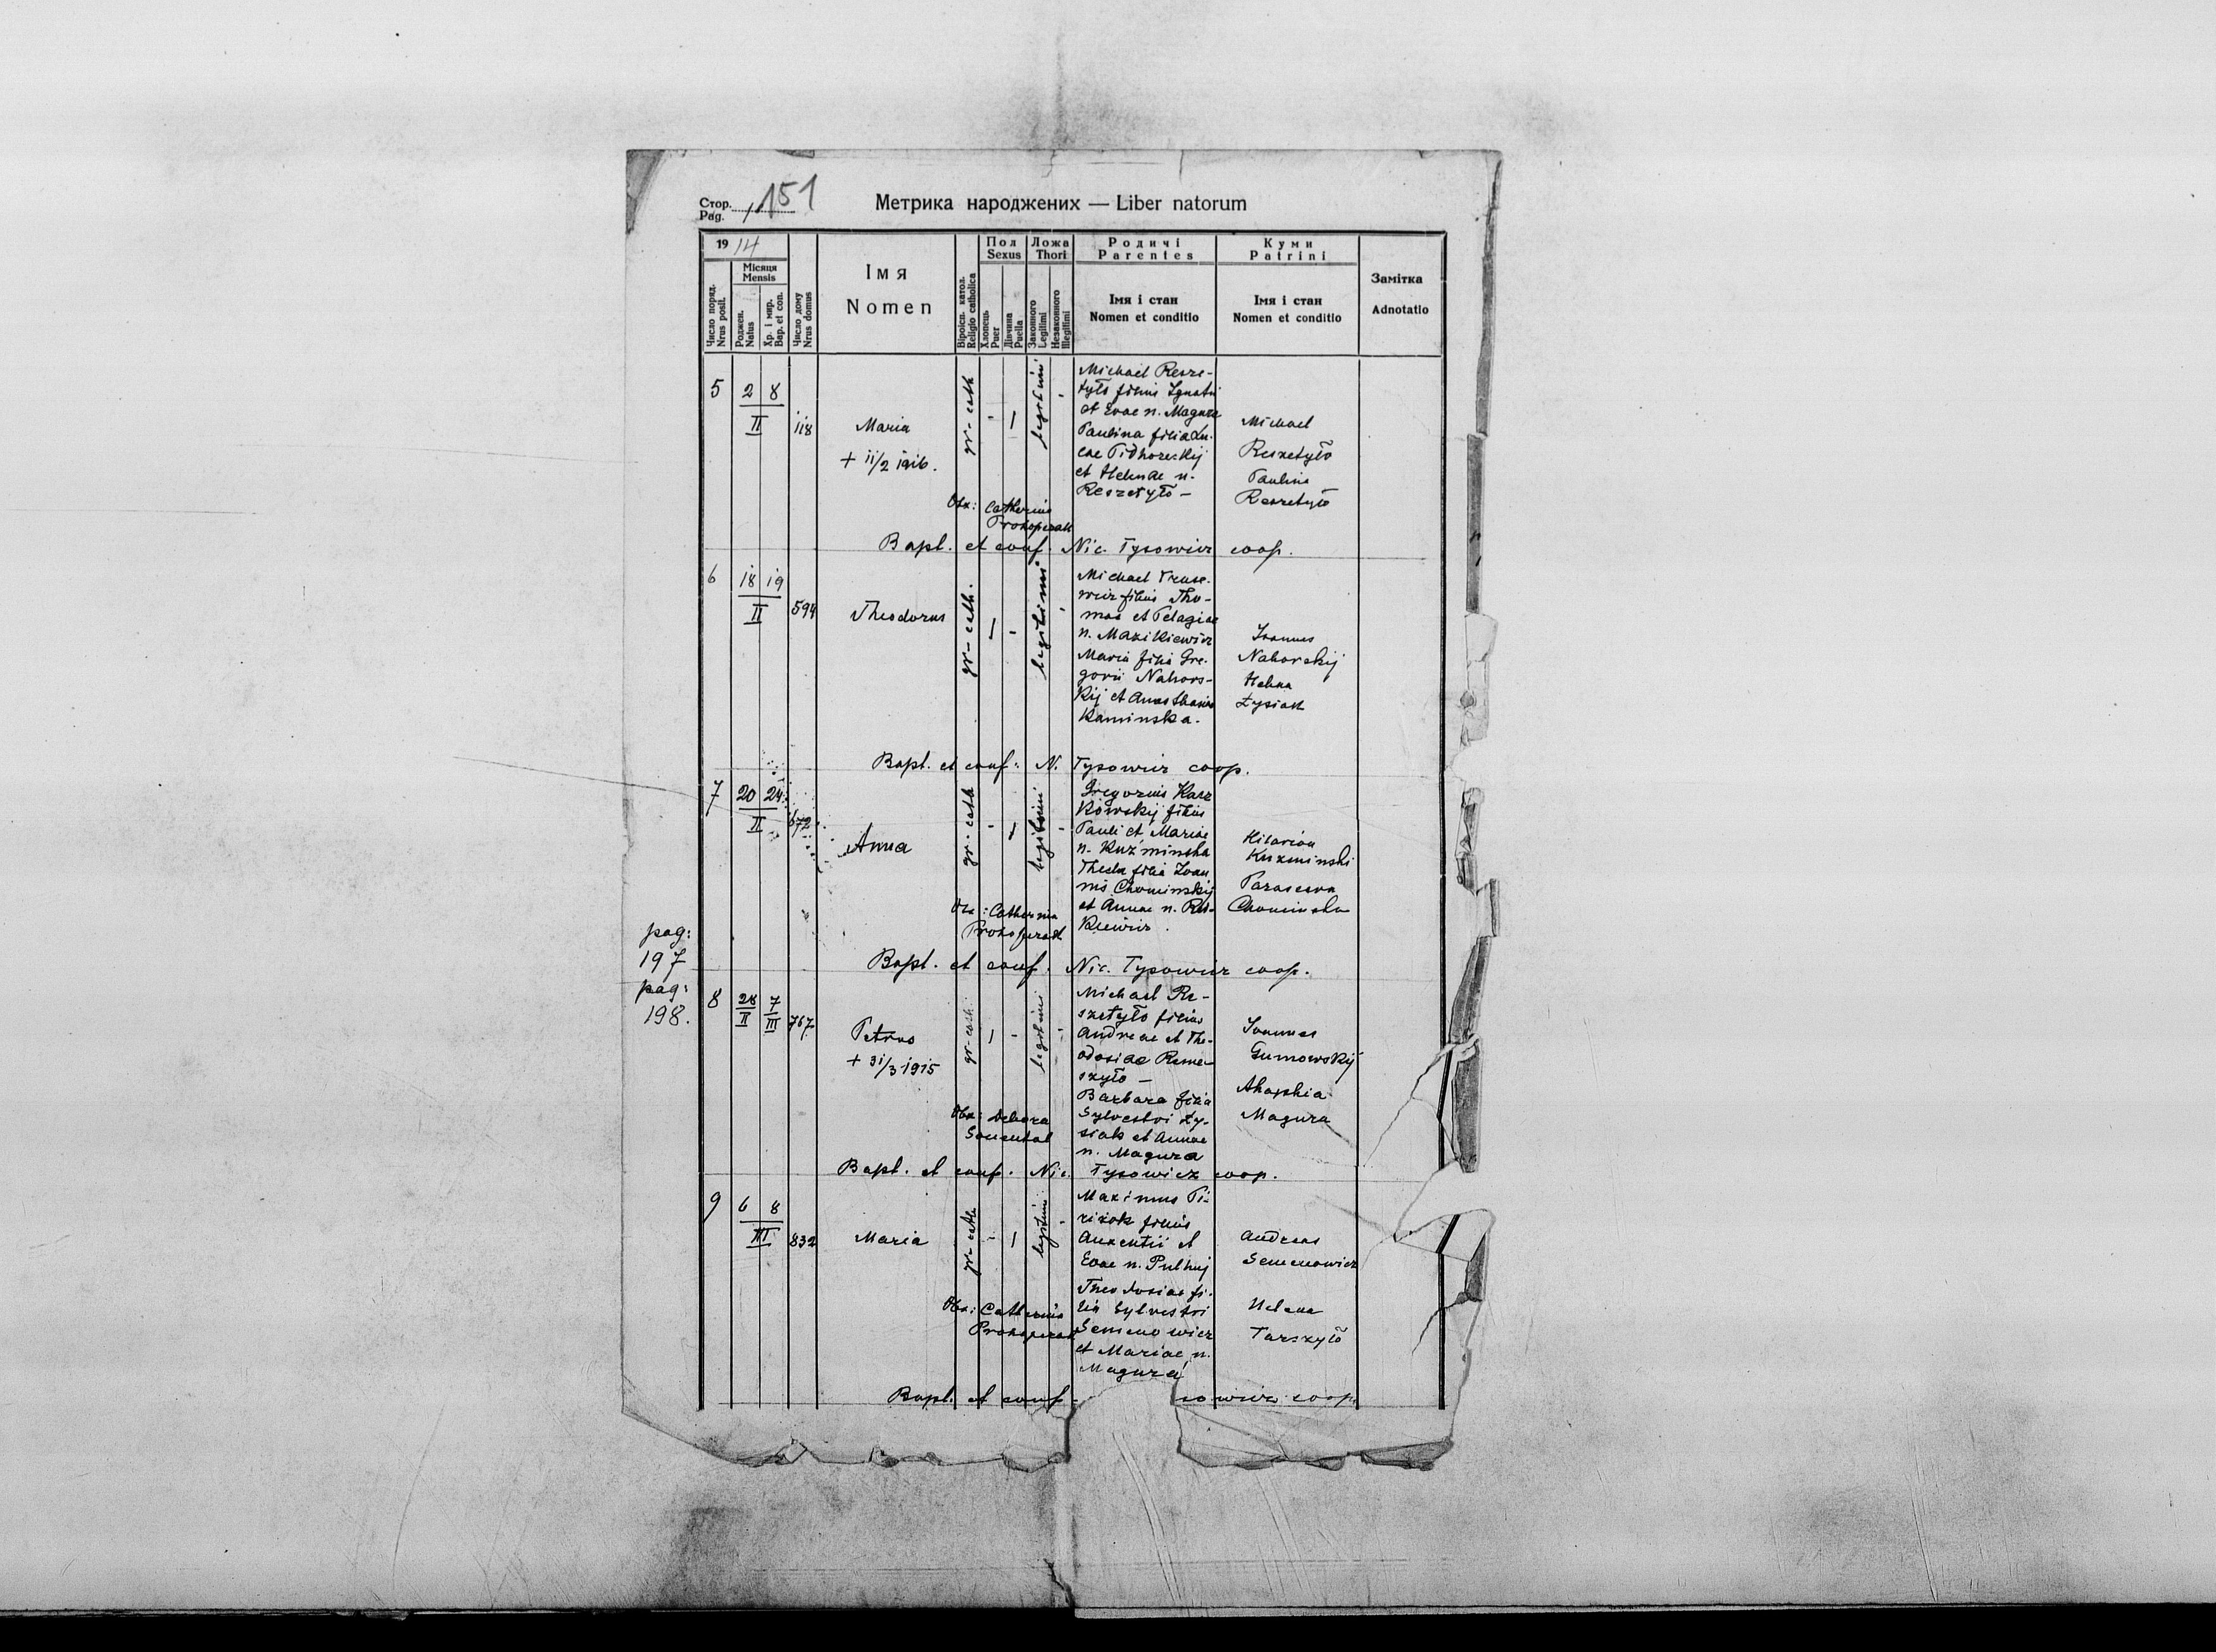 Стор.
Pag. 1 151
Метрика народжених — Liber natorum
19 14
Число поряд.
Nrus posit.
Місяця
Mensis
Роджен.
Natus
Хр. і мир.
Bap. et con.
Число дому
Nrus domus
Імя
Nomen
Віроісп. катол.
Religio catholica
Пол
Sexus
Хлопець
Puer
Дівчина
Puella
Ложа
Thori
Законного
Legitimi
Незаконного
Illegitimi
Родичі
Parentes
Імя і стан
Nomen et conditio
Куми
Patrini
Імя і стан
Nomen et conditio
Замітка
Adnotatio
5
2 8
II
118
Maria
+ 11/2 1916.
gr-cath
- 1
legitimi
-
Michael Resze-
tyło filius Ignatii
et Evae n. Magura
Paulina filia Lu-
cae Pidhoreckij
et Helenae n.
Reszetyło -
Michael
Reszetyło
Paulina
Reszetyło
Obs: Catherina
Prokopczak
Bapt. et conf. Nic. Tysowicz coop.
6
18 19
II
594
Theodorus
gr-cath.
1 -
legitimi
-
Michael
filius Tho-
mae et Pelagiae
n. Mazikiewicz
Maria filia Gre-
gorii Nahors-
kij et Anasthasiae
Kaminska.
Ioannes
Nahorskij
Helena
Łysiak
Bapt. et conf. N. Tysowicz coop.
7
20 24
II
672
Anna
gr-cath
- 1
legitimi
-
Gregorius Kacz
kowskij filius
Pauli et Mariae
n. Kuźminska
Thecla filia Ioan
nis Chominskij
et Annae n.
Hilarion
Kuzminski
Parasceva
Chominska
Obs: Catherina
Prokopczak
Bapt. et conf. Nic. Tysowicz coop.
pag:
197
pag:
198.
8
28
II
7
III
767
Petrus
+ 31/3 1915
gr-cath.
1 -
legitimi
-
Michael Re-
szetyło filius
Andreae et The-
odosiae
Barbara filia
Sylvestri Ły-
siak et Annae
n. Magura
Ioannes
Gumowskij
Ahaphia
Magura
Obs: Debora
Bapt. et conf. Nic. Tysowicz coop.
9
6 8
III
832
Maria
gr-cath
- 1
legitimi
-
Maximus Pi-
rizok filius
Auxentii et
Evae n. Pulhuj
Theodosiae fi-
lia Sylvestri
Semenowicz
et Mariae n.
Magura
Andreas
Semenowicz
Helena
Tarszyło
Obs: Catherina
Prokopczak
Bapt. et conf. sowicz coop.